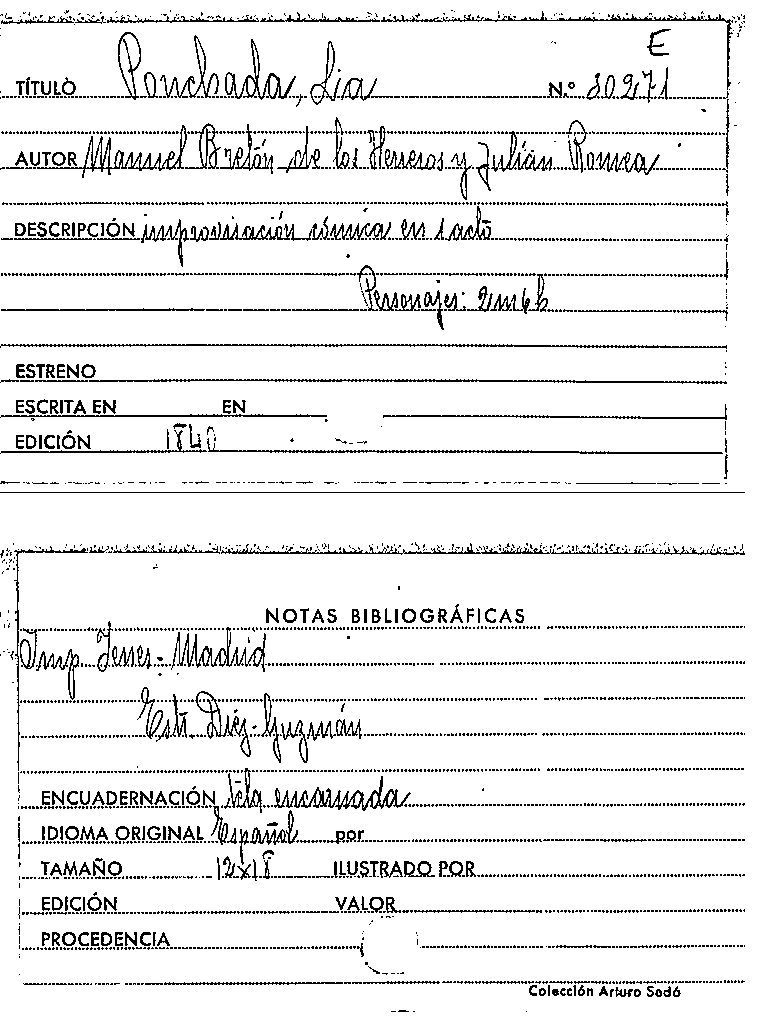 E
TÍTULO Ponchada, La N.º 80271
AUTOR Manuel Bretón de los Herreros y Julián Romea
DESCRIPCIÓN improvisación cómica en 1 acto
Personajes: 2m6h
ESTRENO
ESCRITA EN EN
EDICIÓN 1840
NOTAS BIBLIOGRÁFICAS
Imp. Yenes - Madrid
Estr. Díez - Guzmán
ENCUADERNACIÓN tela encarnada
IDIOMA ORIGINAL Español por
TAMAÑO 12x18 ILUSTRADO POR
EDICIÓN VALOR
PROCEDENCIA
Colección Arturo Sedó